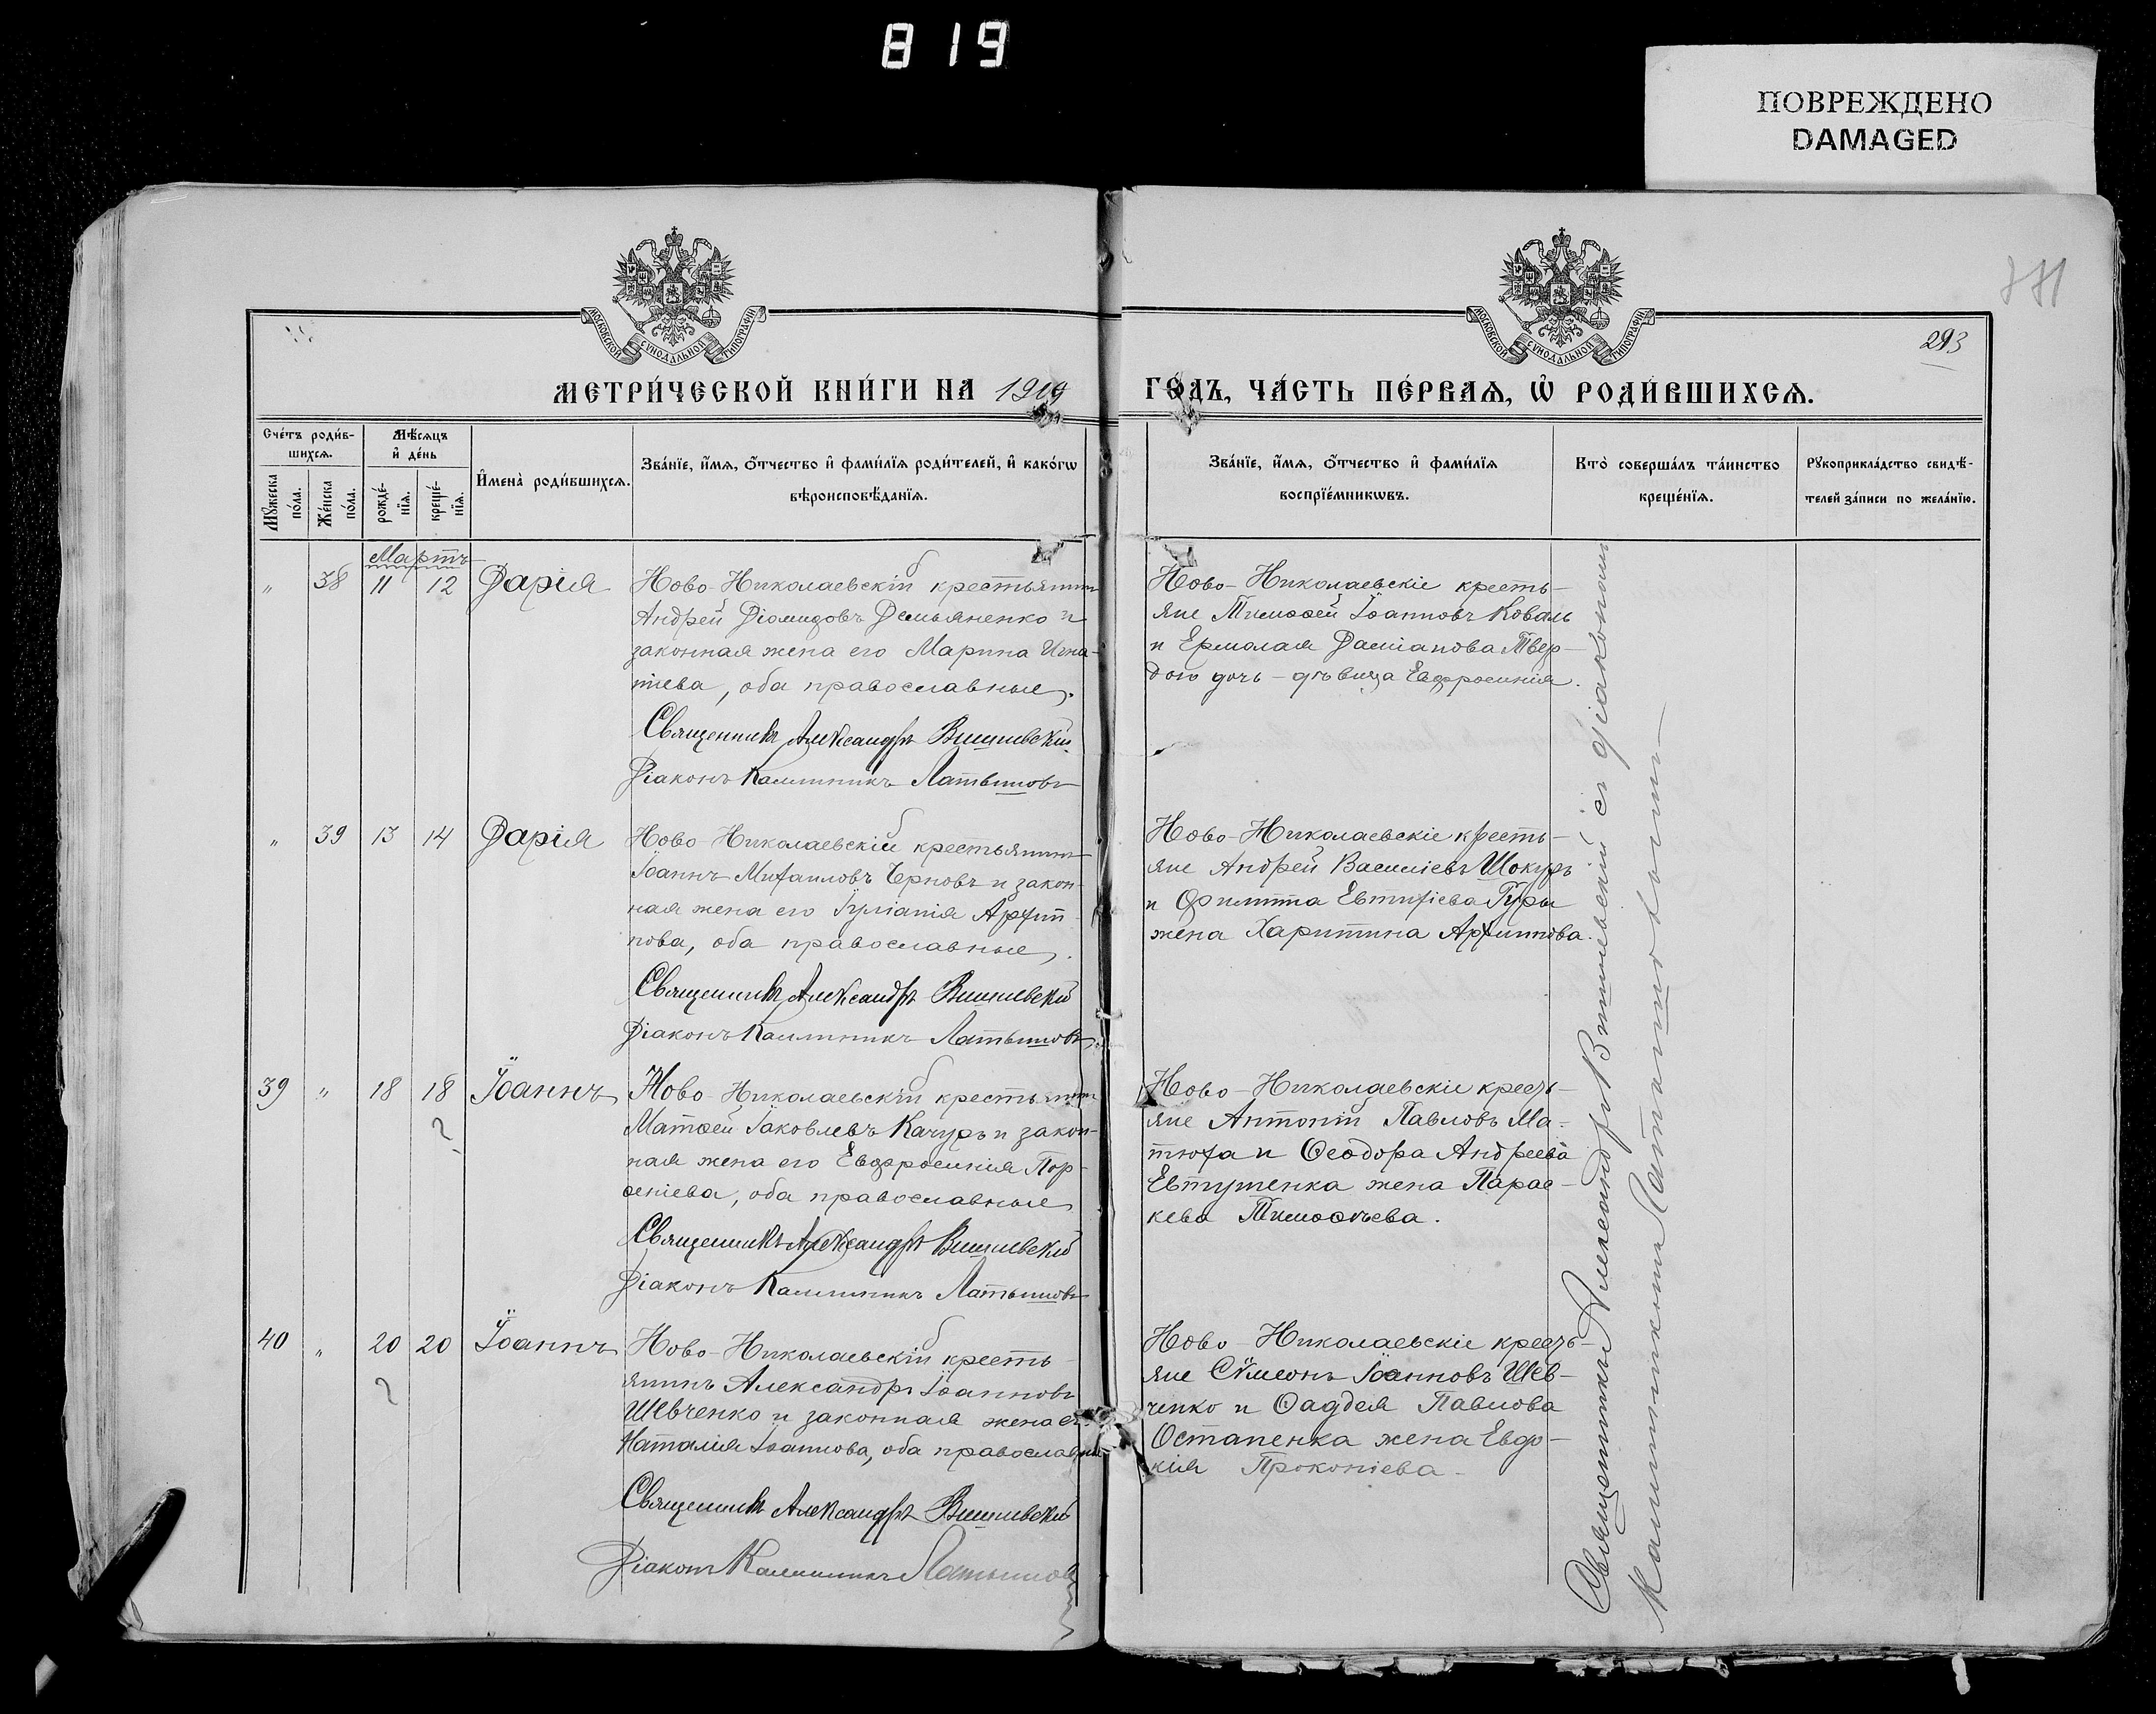 819
ПОВРЕЖДЕНО
DAMAGED
МОСКОВСКОЙ СѴНОДАЛЬНОЙ ТИПОГРАФІИ
МОСКОВСКОЙ СѴНОДАЛЬНОЙ ТИПОГРАФІИ
293
МЕТРИ́ЧЕСКОЙ КНИ́ГИ НА
ГО́ДЪ, ЧА́СТЬ ПЕ́РВАѦ, Ѡ҆ РОДИ́ВШИХСѦ.
Сче́тъ роди́в-
шихсѧ.
Мꙋ́жеска по́ла.
Же́нска по́ла.
Мѣ́сѧцъ
и҆ де́нь
рожде́-
нїѧ.
креще́-
нїѧ.
И҆мена̀ роди́вшихсѧ.
Зва́нїе, и҆́мѧ, ѻ҆́тчество и҆ фами́лїѧ роди́телей, и҆ како́гѡ
вѣроисповѣ́данїѧ.
Зва́нїе, и҆́мѧ, ѻ҆́тчество и҆ фами́лїѧ
воспрїе́мникѡвъ.
Кто̀ соверша́лъ та́инство
креще́нїѧ.
Рꙋкоприкла́дство свидѣ́-
телей за́писи по жела́нїю.
Мартъ
" 38 11 12 Дарія
Ново-Николаевскій крестьянинъ
Андрей Діомидовъ Демьяненко и
законная жена его Марина Игна-
тіева, оба православные.
Священникъ Александръ Вишневскій
Діаконъ Каллиникъ Латышовъ
Ново-Николаевскіе кресть-
яне Тимоѳей Іоанновъ Коваль
и Ермолая Даміанова Твер-
дого дочь-дѣвица Евфросинія.
" 39 13 14 Дарія
Ново-Николаевскій крестьянинъ
Іоаннъ Михаиловъ Черновъ и закон-
ная жена его Іуліанія Архип-
пова, оба православные.
Священникъ Александръ Вишневскій
Діаконъ Каллиникъ Латышовъ
Ново-Николаевскіе кресть-
яне Андрей Василіевъ Шокуръ
и Филиппа Евтихіева Гуры
жена Харитина Архиппова.
39 " 18 18 Іоаннъ
?
Ново-Николаевскій крестьянинъ
Матѳей Іаковлевъ Качуръ и закон-
ная жена его Евфросинія Пор-
ѳеніева, оба православные
Священникъ Александръ Вишневскій
Діаконъ Каллиникъ Латышовъ
Ново-Николаевскіе кресть-
яне Антоній Павловъ Ма-
тюха и Ѳеодора Андреева
Евтушенка жена Парас-
кева Тимоѳѣева.
40 " 20 20 Іоаннъ
?
Ново-Николаевскій кресть-
янинъ Александръ Іоанновъ
Шевченко и законная жена его
Наталія Іоаннова, оба православные
Священникъ Александръ Вишневскій
Діаконъ Каллиникъ Латышовъ
Ново-Николаевскіе кресть-
яне Сѵмеонъ Іоанновъ Шев-
ченко и Ѳаддея Павлова
Остапенка жена Евдо-
кія Прокопіева.
Священникъ Александръ Вишневскій съ діакономъ
Каллиникомъ Латышовымъ